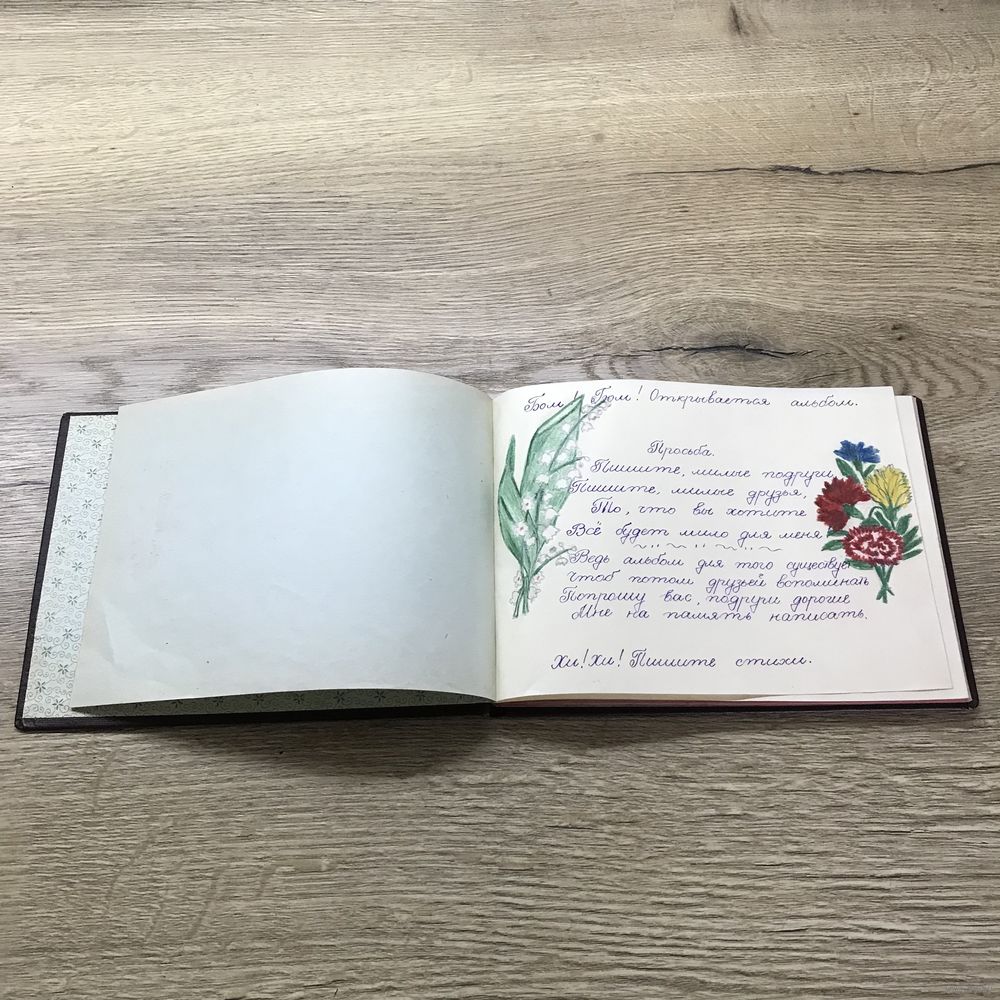 Бом! Бом! Открывается альбом.
Просьба.
Пишите, милые подруги,
Пишите, милые друзья,
То, что вы хотите
Всё будет мило для меня
Ведь альбом для того существует
чтоб потом друзей вспоминать
Попрошу вас, подруги дорогие
Мне на память написать.
Хи! Хи! Пишите стихи.